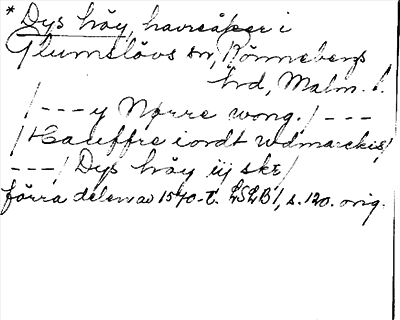 * Dys höy, havreåker i
Glumslövs sn, Rönnebergs
hrd, Malm. l.
/--- y Nørre wong./ ---
/Haueffre iordt vdmarckis/
---/ Dys höy iij ske/
förra delen av 1570-t. LSLB1, s. 120. orig.